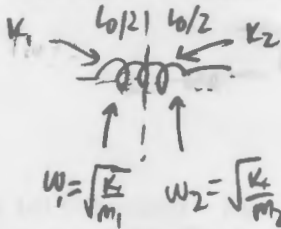 K₁ l₀/2 | l₀/2 K₂
ω₁=√(K₁/m₁) ω₂=√(K₁/m₂)